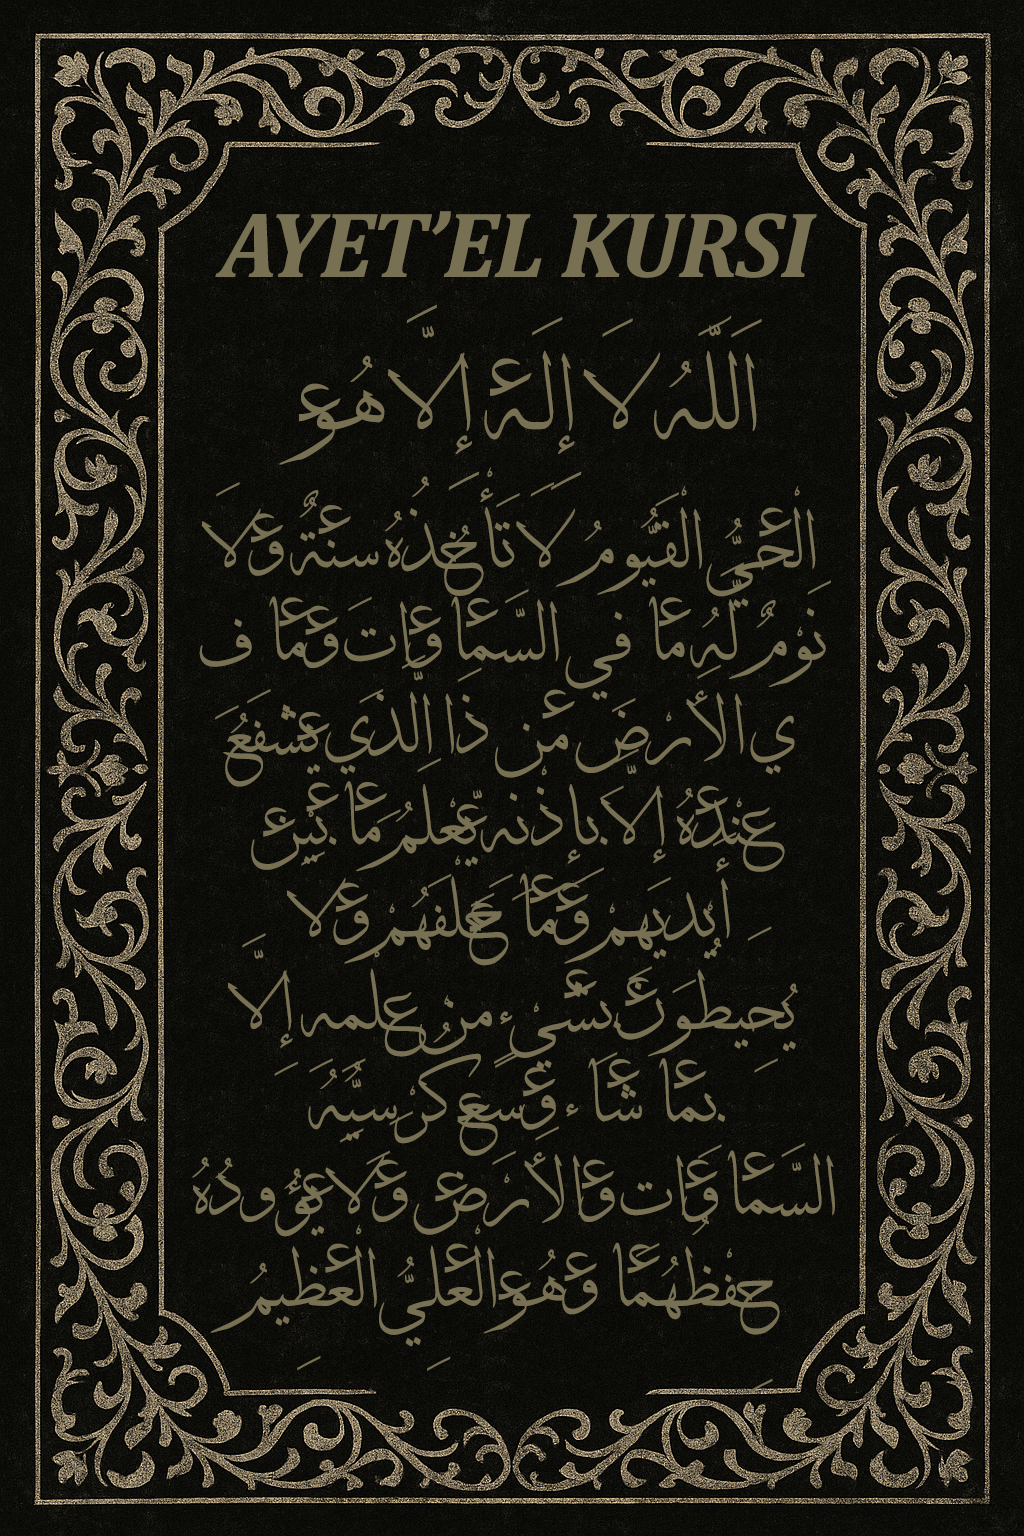 AYET'EL KURSI
اَللَّهُ لَا إِلَهَ إِلَّا هُوَ
الْحَيُّ الْقَيُّومُ لَا تَأْخُذُهُ سِنَةٌ وَلَا
نَوْمٌ لَهُ مَا فِي السَّمَاوَات وَمَا ف
ي الْأَرْضِ مَن ذَا الَّذِي يَشْفَعُ
عِنْدَهُ إِلَّا بِإِذْنِهِ يَعْلَمُ مَا بَيْنَ
أَيْدِيهِمْ وَمَا خَلْفَهُمْ وَلَا
يُحِيطُونَ بِشَيْءٍ مِنْ عِلْمِهِ إِلَّا
بِمَا شَاءَ وَسِعَ كُرْسِيُّهُ
السَّمَاوَات وَالْأَرْضَ وَلَا يَؤُودُهُ
حِفْظُهُمَا وَهُوَ الْعَلِيُّ الْعَظِيمُ